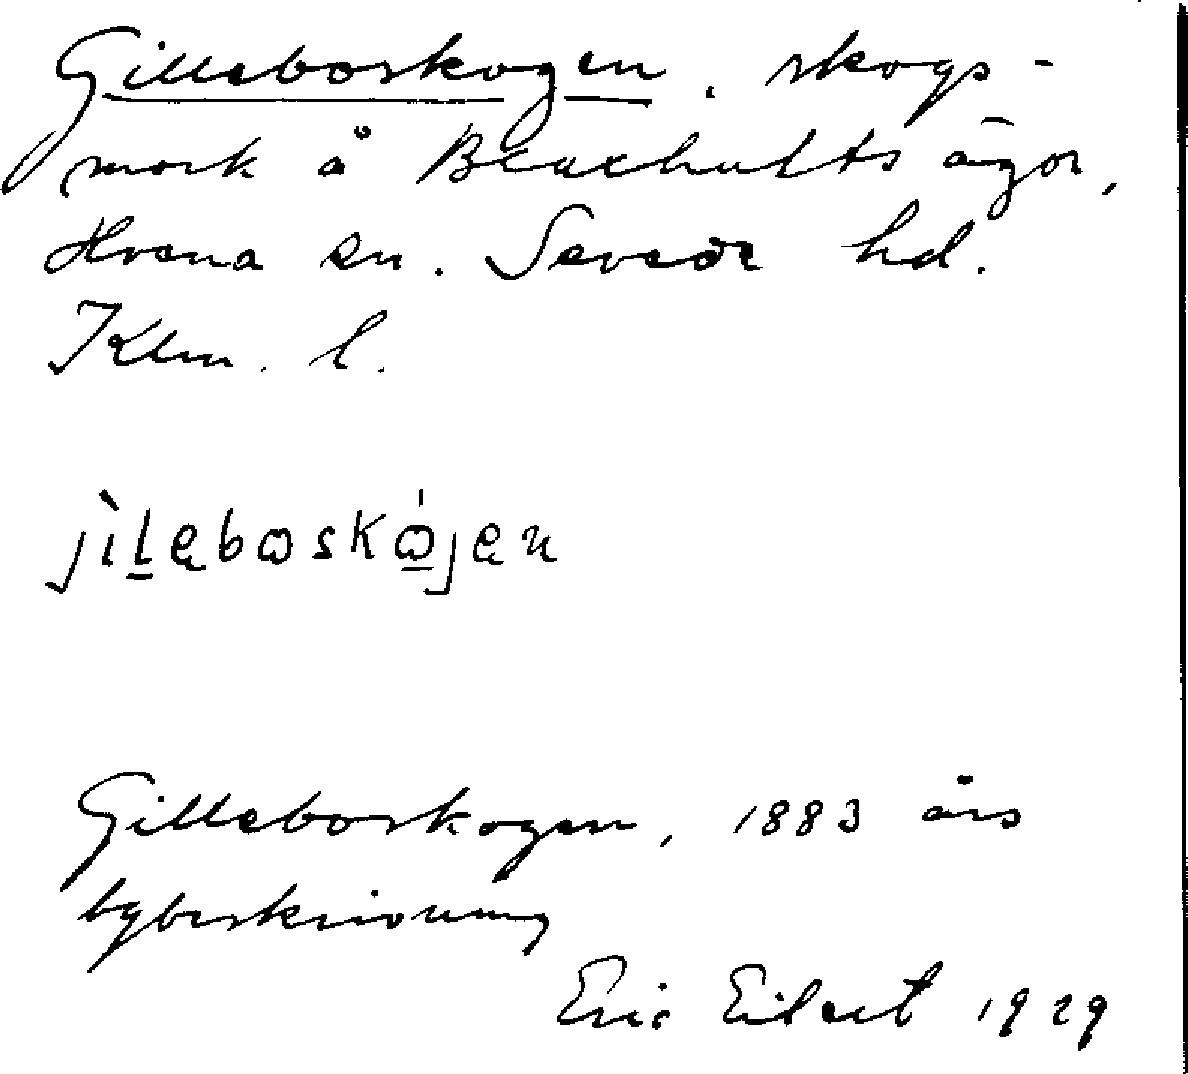 Gilleboskogen, skogs-
mark å Blaxhults ägor,
Hvena sn. Sevede hd.
Klm. l.
Gilleboskogen, 1883 års
bybeskrivning
Eric Eilert 1929